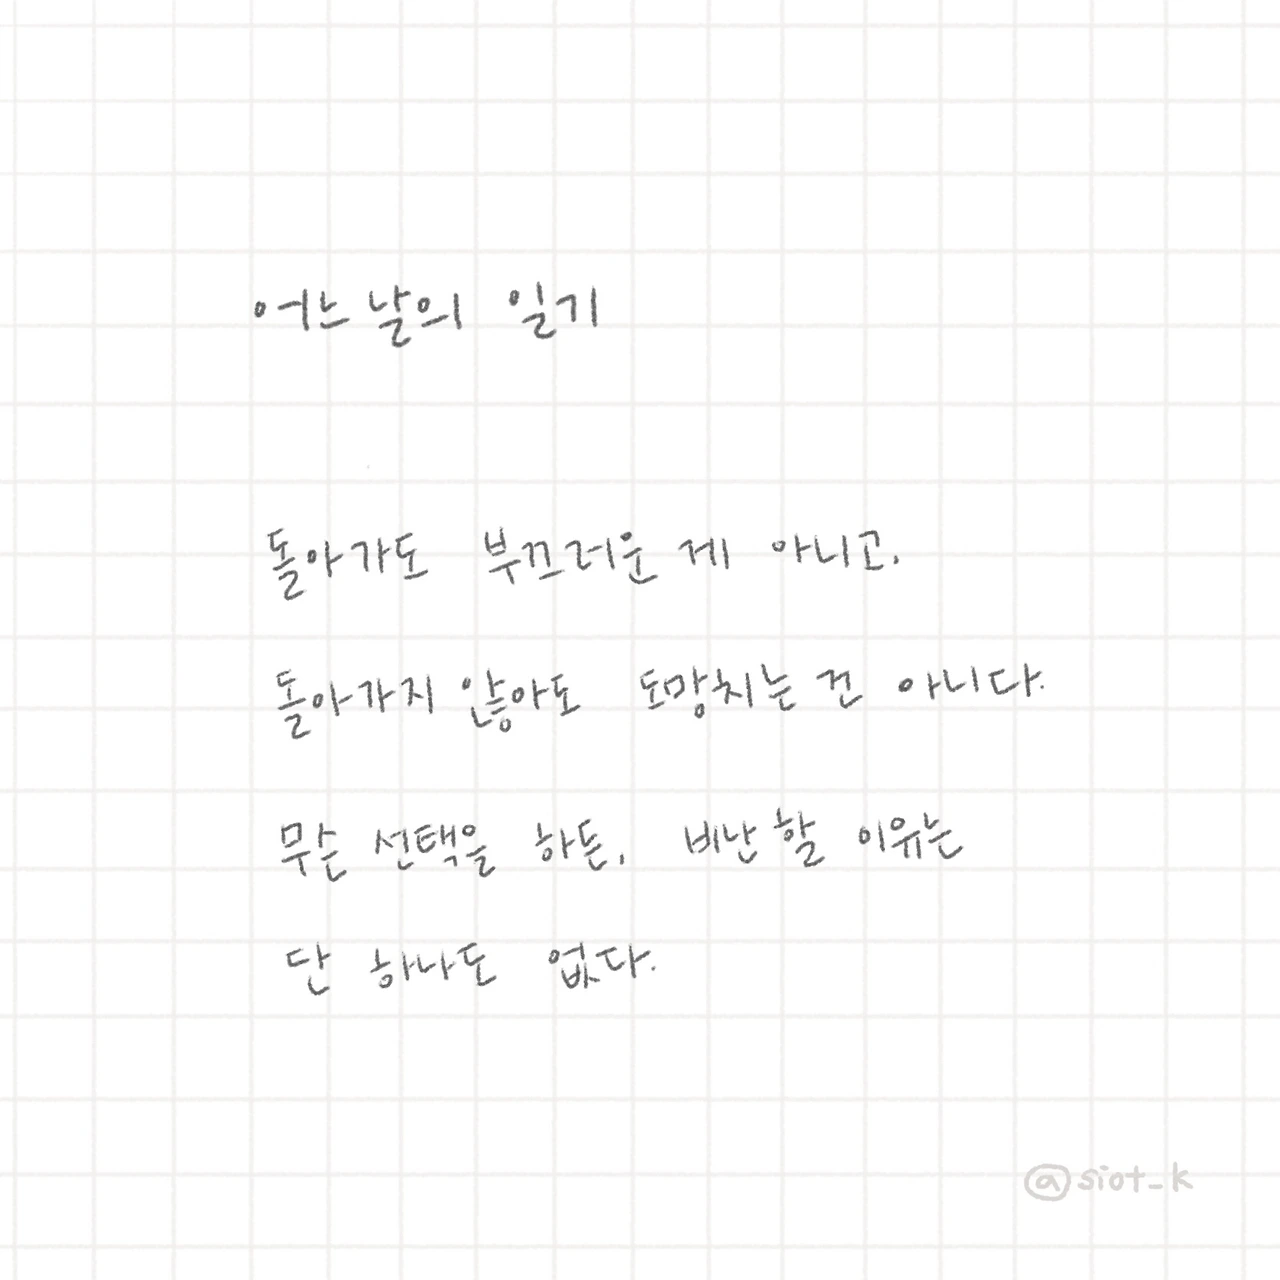 어느 날의 일기
돌아가도 부끄러운 게 아니고,
돌아가지 않아도 도망치는 건 아니다.
무슨 선택을 하든, 비난할 이유는
단 하나도 없다.
@siot_k